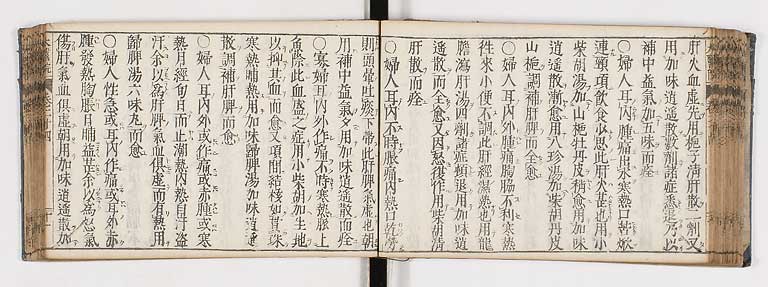 肝火血虛先用梔子清肝散二劑又
用加味逍遙散數劑諸症悉退乃以
補中益氣加五味而痊
○婦人耳內腫痛出水寒熱口苦焮
連頸項飲食少思此肝火甚也用小
柴胡湯加山梔牡丹皮稍愈用加味
逍遙散漸愈用八珍湯加柴胡丹皮
山梔調補肝脾而全愈
○婦人耳內外腫痛胸脇不利寒熱
往來小便不調此肝經濕熱也用龍
膽瀉肝湯四劑諸症頓退用加味逍
遙散而全愈又因怒復作用柴胡清
肝散而痊
○婦人耳內不時脹痛內熱口乾勞
則頭暈吐痰下帶此肝脾氣虛也朝
用補中益氣夕用加味逍遙散而痊
○寡婦耳內外作痛不時寒熱脈上
魚際此血盛之症用小柴胡加生地
以抑其血而愈又項間結核如貫珠
寒熱晡熱用加味歸脾湯加味逍遙
散調補肝脾而愈
○婦人耳內外或作痛或赤腫或寒
熱月經旬日而止潮熱內熱自汗盜
汗余以為肝脾氣血俱虛而有熱用
歸脾湯六味丸而愈
○婦人性急或耳內作痛或耳外赤
腫發熱胸脹日晡益甚余以為怒氣
傷肝氣血俱虛朝用加味逍遙散加